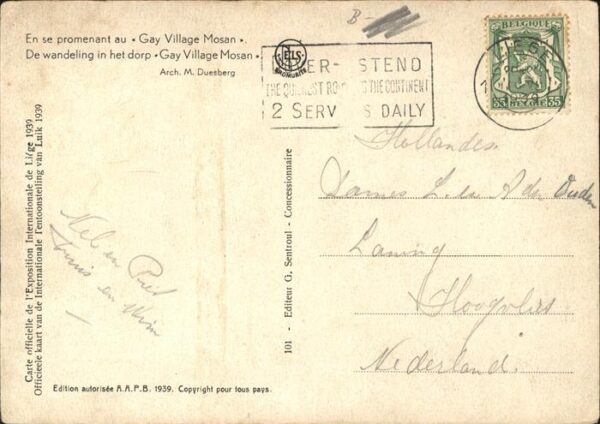 B-
En se promenant au « Gay Village Mosan ».
De wandeling in het dorp « Gay Village Mosan »
Arch. M. Duesberg
ELS
BROMURITE
STEND
THE CONTINENT
2 SERV S DAILY
BELGIQUE
35 35
Carte officielle de l'Exposition Internationale de Liége 1939
Officieele kaart van de Internationale Tentoonstelling van Luik 1939
101 - Editeur G. Sentroul - Concessionnaire
Nel en Piet
en Wim
Hollandes
Dames L. A den Ouden
Laning
Hoogvliet
Nederland.
Edition autorisée A.A.P.B. 1939. Copyright pour tous pays.